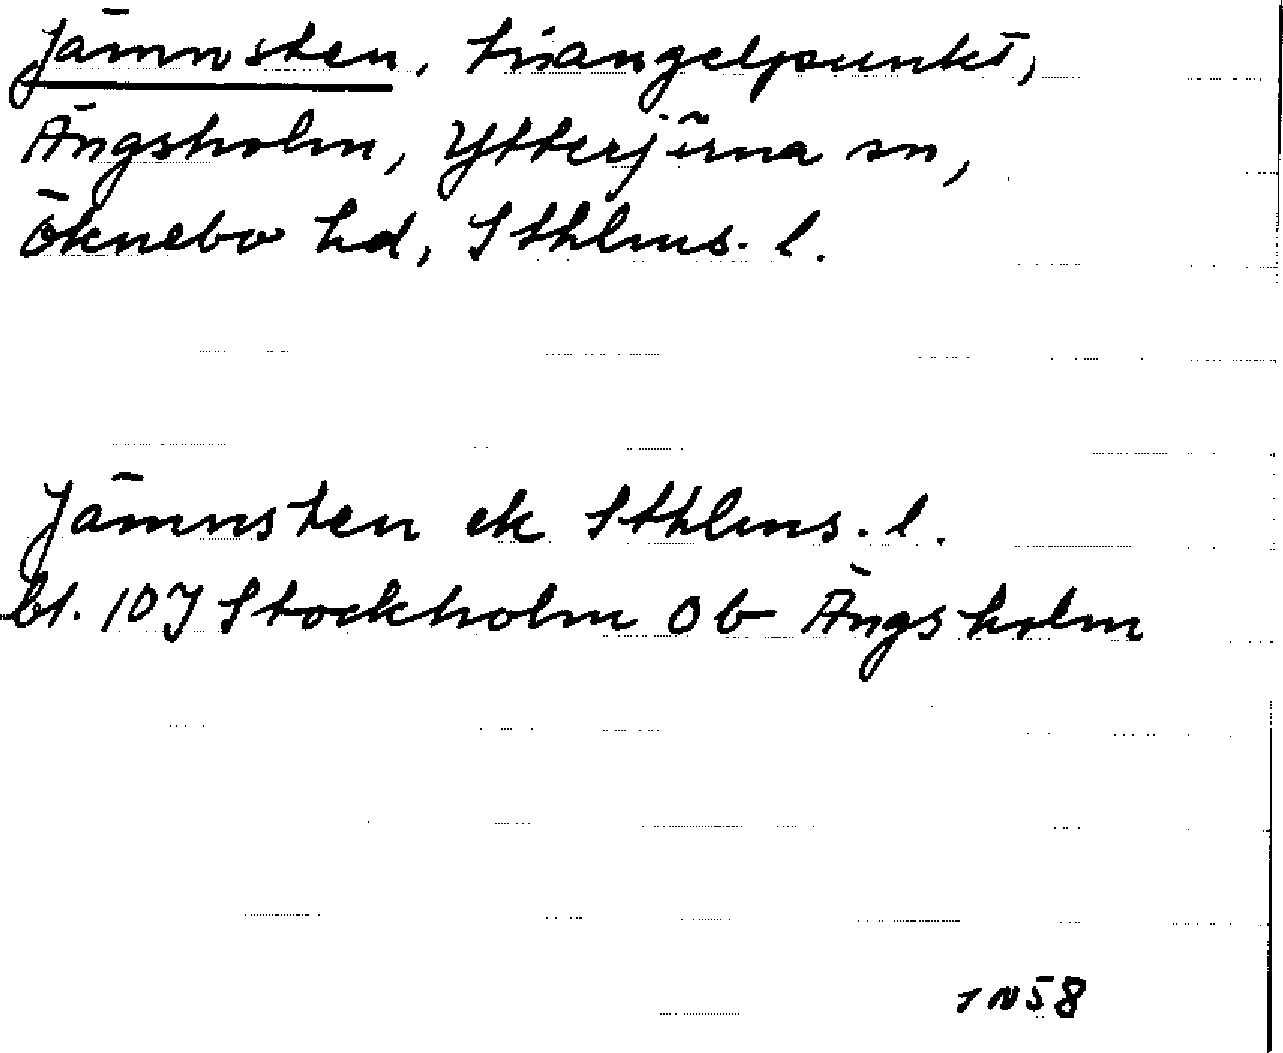 Jämnsten, triangelpunkt,
Ängsholm, Ytterjärna sn,
Öknebo hd, Sthlms. l.
Jämnsten ek Sthlms. l.
bl. 10J Stockholm Ob Ängsholm
1N58